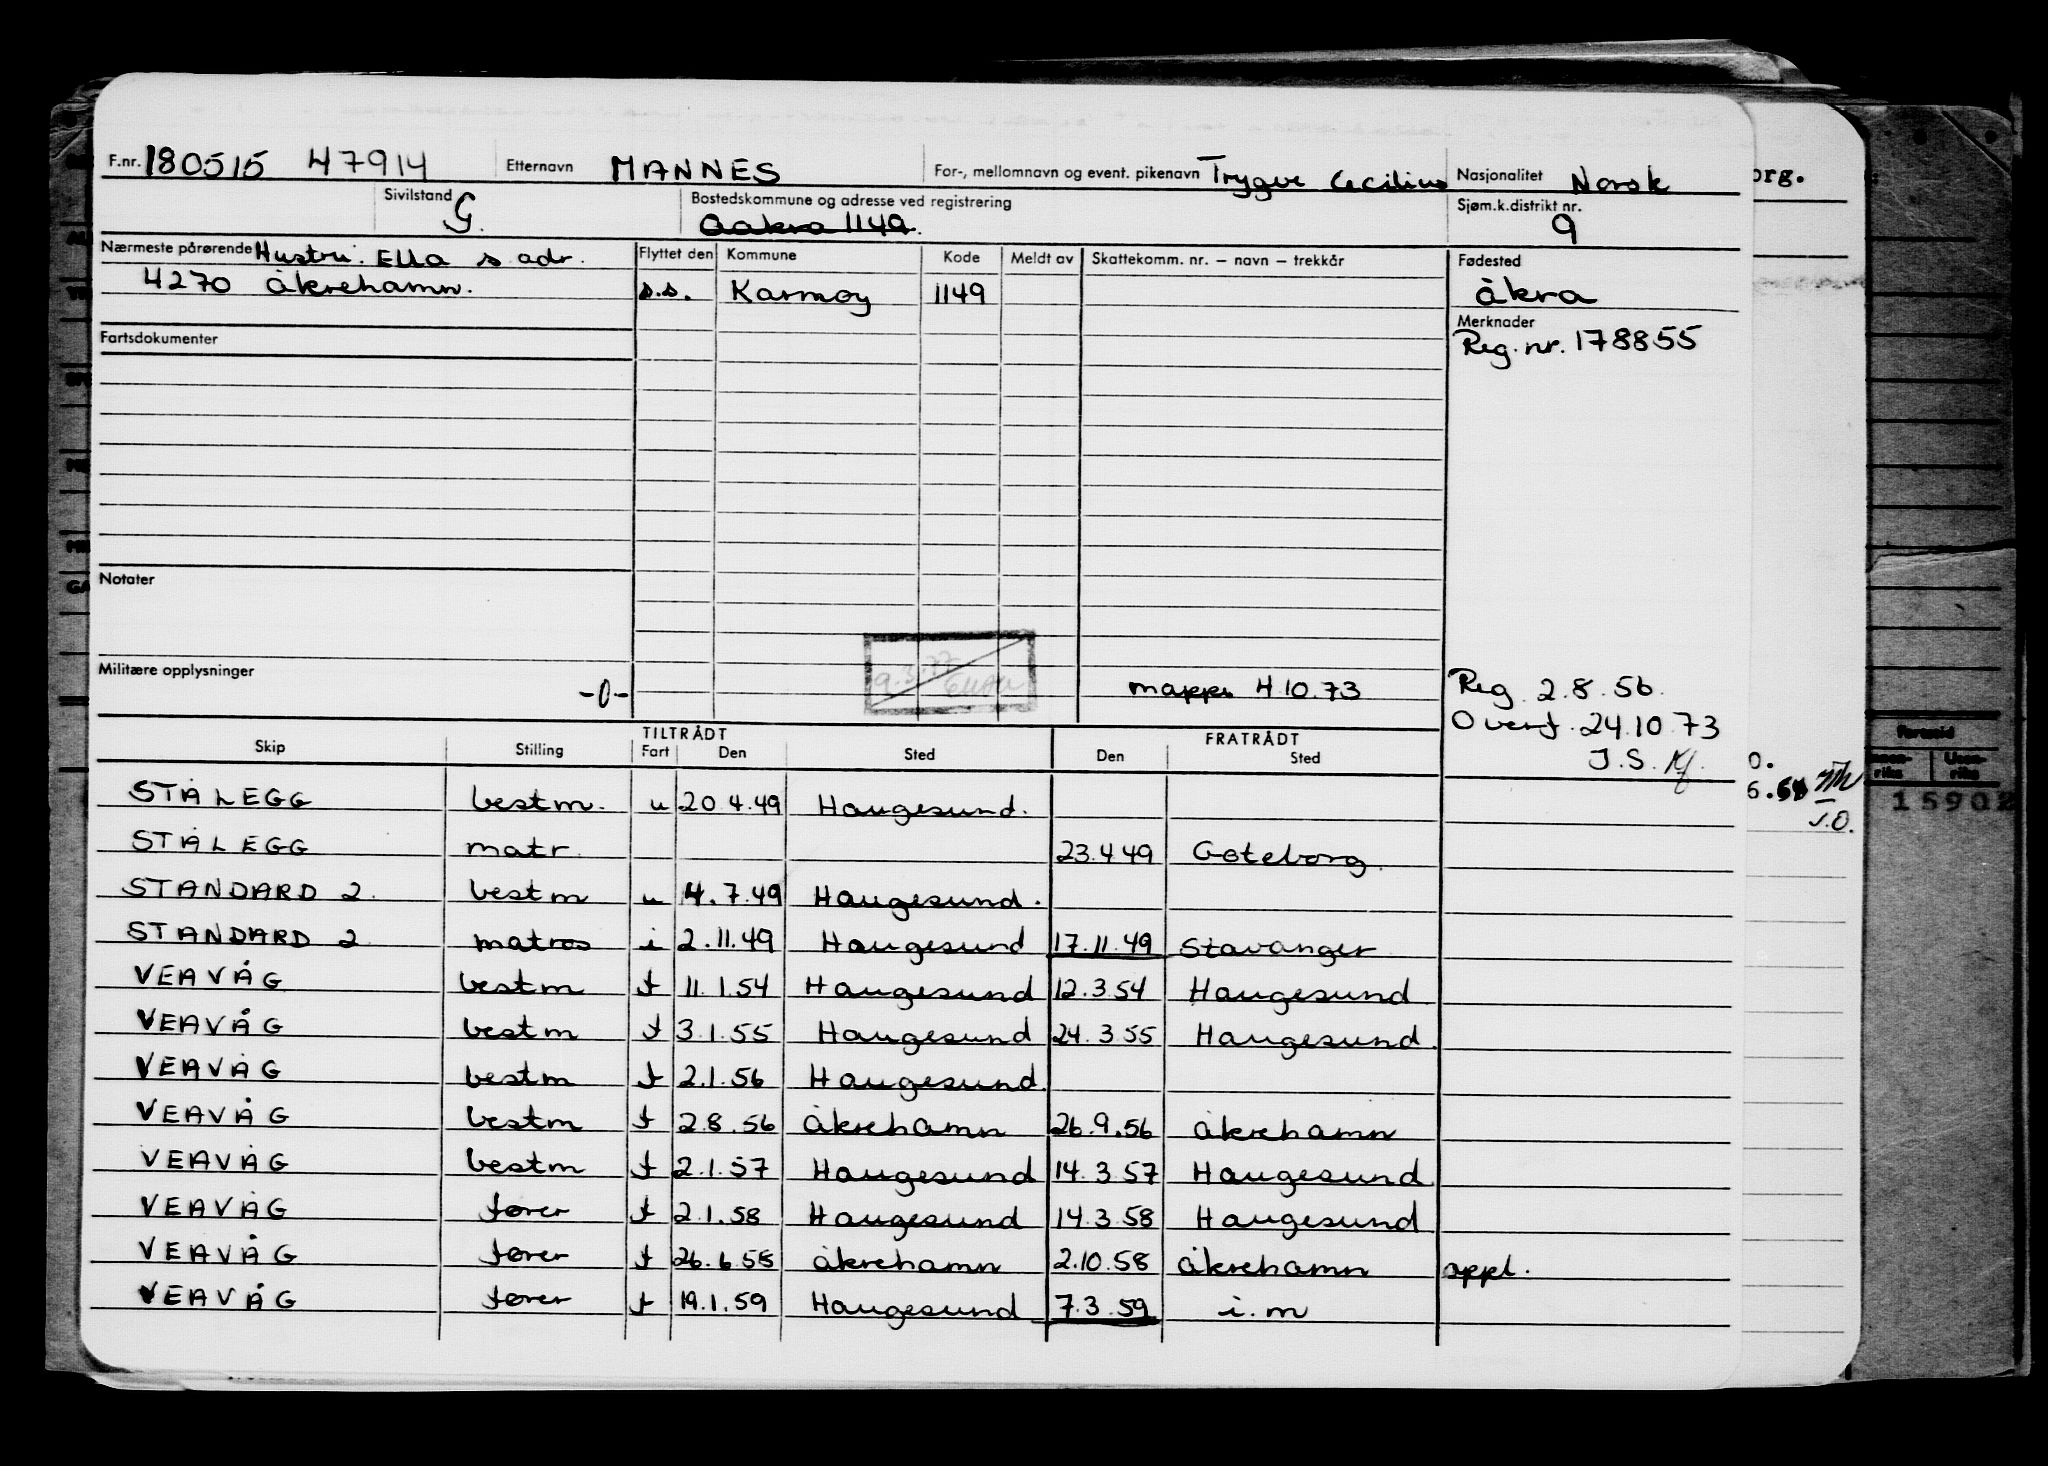 F.nr. 180515 47914 Etternavn MANNES For-, mellomnavn og event. pikenavn Trygve Cecilius Nasjonalitet Norsk
Sivilstand G. Bostedskommune og adresse ved registrering Aakra 1149. Sjøm.k.distrikt nr. 9
Nærmeste pårørende Hustru. Ella s adr. Flyttet den Kommune Kode Meldt av Skattekomm. nr. – navn – trekkår Fødested
4270 Åkrehamn. s.s. Karmøy 1149 Åkra
Fartsdokumenter Merknader
Reg. nr. 178855
Notater
Militære opplysninger -0- 9.3.77 mappe 4.10.73 Reg. 2.8.56.
Overf. 24.10.73
J.S.
TILTRÅDT FRATRÅDT
Skip Stilling Fart Den Sted Den Sted
STÅLEGG bestm. u 20.4.49 Haugesund.
STÅLEGG matr. 23.4.49 Göteborg.
STANDARD 2. bestm u 4.7.49 Haugesund.
STANDARD 2 matros i 2.11.49 Haugesund 17.11.49 Stavanger
VEAVÅG bestm f 11.1.54 Haugesund 12.3.54 Haugesund
VEAVÅG bestm f 3.1.55 Haugesund 24.3.55 Haugesund.
VEAVÅG bestm f 2.1.56 Haugesund.
VEAVÅG bestm f 2.8.56 Åkrehamn 26.9.56 Åkrehamn
VEAVÅG bestm f 2.1.57 Haugesund 14.3.57 Haugesund
VEAVÅG fører f 2.1.58 Haugesund 14.3.58 Haugesund
VEAVÅG fører f 26.6.58 Åkrehamn 2.10.58 Åkrehamn oppl.
VEAVÅG fører f 19.1.59 Haugesund 7.3.59 i.m
org.
J.O.
Uten-
riks